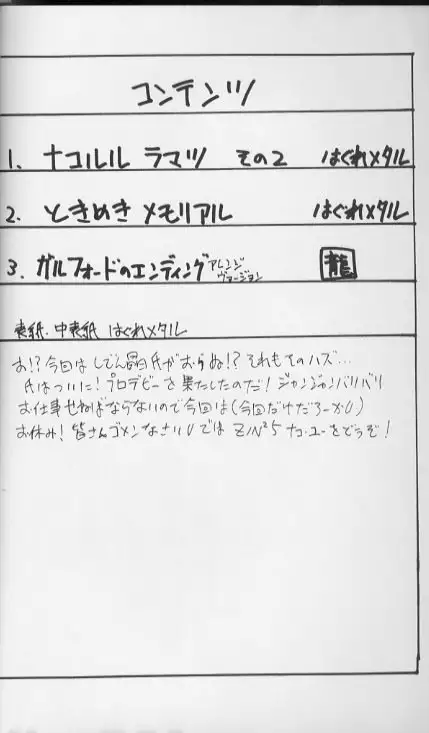 コンテンツ
1. ナコルル ラマツ その2 はぐれメタル
2. ときめき メモリアル はぐれメタル
3. ガルフォードのエンディング アレンジ ヴァージョン 龍
表紙、中表紙 はぐれメタル
お!? 今回は しでん晶氏がおらぬ!? それもそのハズ…
氏はついに! プロデビューを果たしたのだ! ジャンジャンバリバリ
お仕事せねばならないので今回は(今回だけだろーが)
お休み! 皆さんゴメンなさい では Z/N²5 ナコ・ユーをどうぞ!